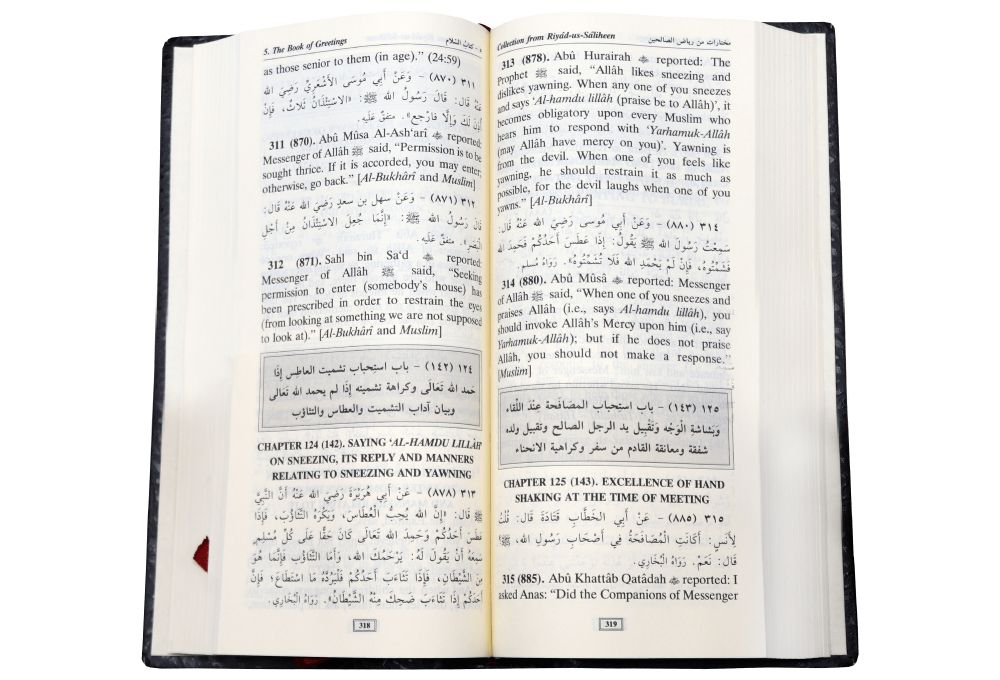 5. The Book of Greetings
٥ - كتاب السَّلام
as those senior to them (in age).” (24:59)
٣١١ (٨٧٠) – وَعَنْ أَبِي مُوسَى الأَشْعَرِيِّ رَضِيَ الله
عَنْهُ قَالَ: قَالَ رَسُولُ الله ﷺ: «الاسْتِئْذَانُ ثَلاثٌ، فَإِنْ
أُذِنَ لَكَ وَإِلَّا فَارْجِعْ». متفقٌ عَلَيهِ.
311 (870). Abû Mûsa Al-Ash‘arî reported:
Messenger of Allâh ﷺ said, “Permission is to be
sought thrice. If it is accorded, you may enter;
otherwise, go back.” [Al-Bukhârî and Muslim]
٣١٢ (٨٧١) – وَعَنْ سهل بن سعدٍ رَضِيَ الله عَنْهُ قَالَ:
قَالَ رَسُولُ الله ﷺ: «إِنَّمَا جُعِلَ الاسْتِئْذَانُ مِنْ أَجْلِ
الْبَصَرِ». متفق عَلَيهِ.
312 (871). Sahl bin Sa‘d reported:
Messenger of Allâh ﷺ said, “Seeking
permission to enter (somebody’s house) has
been prescribed in order to restrain the eyes
(from looking at something we are not supposed
to look at).” [Al-Bukhârî and Muslim]
١٢٤ (١٤٢) – باب استحباب تشميت العاطس إِذَا
حمد الله تَعَالَى وكراهة تشميته إِذَا لم يحمد الله تَعَالَى
وبيان آداب التشميت والعطاس والتثاؤب
CHAPTER 124 (142). SAYING ‘AL-HAMDU LILLÂH’
ON SNEEZING, ITS REPLY AND MANNERS
RELATING TO SNEEZING AND YAWNING
٣١٣ (٨٧٨) – عَنْ أَبِي هُرَيْرَةَ رَضِيَ الله عَنْهُ أَنَّ النَّبِيَّ
ﷺ قَالَ: «إِنَّ الله يُحِبُّ الْعُطَاسَ، وَيَكْرَهُ التَّثَاؤُبَ، فَإِذَا
عَطَسَ أَحَدُكُمْ وَحَمِدَ الله تَعَالَى كَانَ حَقًّا عَلَى كُلِّ مُسْلِمٍ
سَمِعَهُ أَنْ يَقُولَ لَهُ: يَرْحَمُكَ الله، وَأَمَّا التَّثَاؤُبُ فَإِنَّمَا هُوَ
مِنَ الشَّيْطَانِ، فَإِذَا تَثَاءَبَ أَحَدُكُمْ فَلْيَرُدَّهُ مَا اسْتَطَاعَ؛ فَإِنَّ
أَحَدَكُمْ إِذَا تَثَاءَبَ ضَحِكَ مِنْهُ الشَّيْطَانُ». رَوَاهُ الْبُخَارِي.
318
Collection from Riyâd-us-Sâliheen
مختارات من رياض الصالحين
313 (878). Abû Hurairah reported: The
Prophet ﷺ said, “Allâh likes sneezing and
dislikes yawning. When any one of you sneezes
and says ‘Al-hamdu lillâh (praise be to Allâh)’, it
becomes obligatory upon every Muslim who
hears him to respond with ‘Yarhamuk-Allâh
(may Allâh have mercy on you)’. Yawning is
from the devil. When one of you feels like
yawning, he should restrain it as much as
possible, for the devil laughs when one of you
yawns.” [Al-Bukhârî]
٣١٤ (٨٨٠) – وَعَنْ أَبِي مُوسَى رَضِيَ الله عَنْهُ قَالَ:
سَمِعْتُ رَسُولَ الله ﷺ يَقُولُ: إِذَا عَطَسَ أَحَدُكُمْ فَحَمِدَ الله
فَشَمِّتُوهُ، فَإِنْ لَمْ يَحْمَدِ الله فَلَا تُشَمِّتُوهُ». رَوَاهُ مُسلم.
314 (880). Abû Mûsâ reported: Messenger
of Allâh ﷺ said, “When one of you sneezes and
praises Allâh (i.e., says Al-hamdu lillâh), you
should invoke Allâh’s Mercy upon him (i.e., say
Yarhamuk-Allâh); but if he does not praise
Allâh, you should not make a response.”
[Muslim]
١٢٥ (١٤٣) – باب استحباب المصَافحة عِنْدَ اللِّقَاء
وَبَشاشةِ الْوَجْهِ وَتَقْبِيل يد الرجل الصالح وتقبيل ولده
شفقة ومعانقة القادم من سفر وكراهية الانحناء
CHAPTER 125 (143). EXCELLENCE OF HAND
SHAKING AT THE TIME OF MEETING
٣١٥ (٨٨٥) – عَنْ أَبِي الخَطَّابِ قَتَادَةَ قَالَ: قُلْتُ
لِأَنَسٍ: أَكَانَتِ الْمُصَافَحَةُ فِي أَصْحَابِ رَسُولِ الله، ﷺ؟
قَالَ: نَعَمْ. رَوَاهُ الْبُخَارِي.
315 (885). Abû Khattâb Qatâdah reported: I
asked Anas: “Did the Companions of Messenger
319